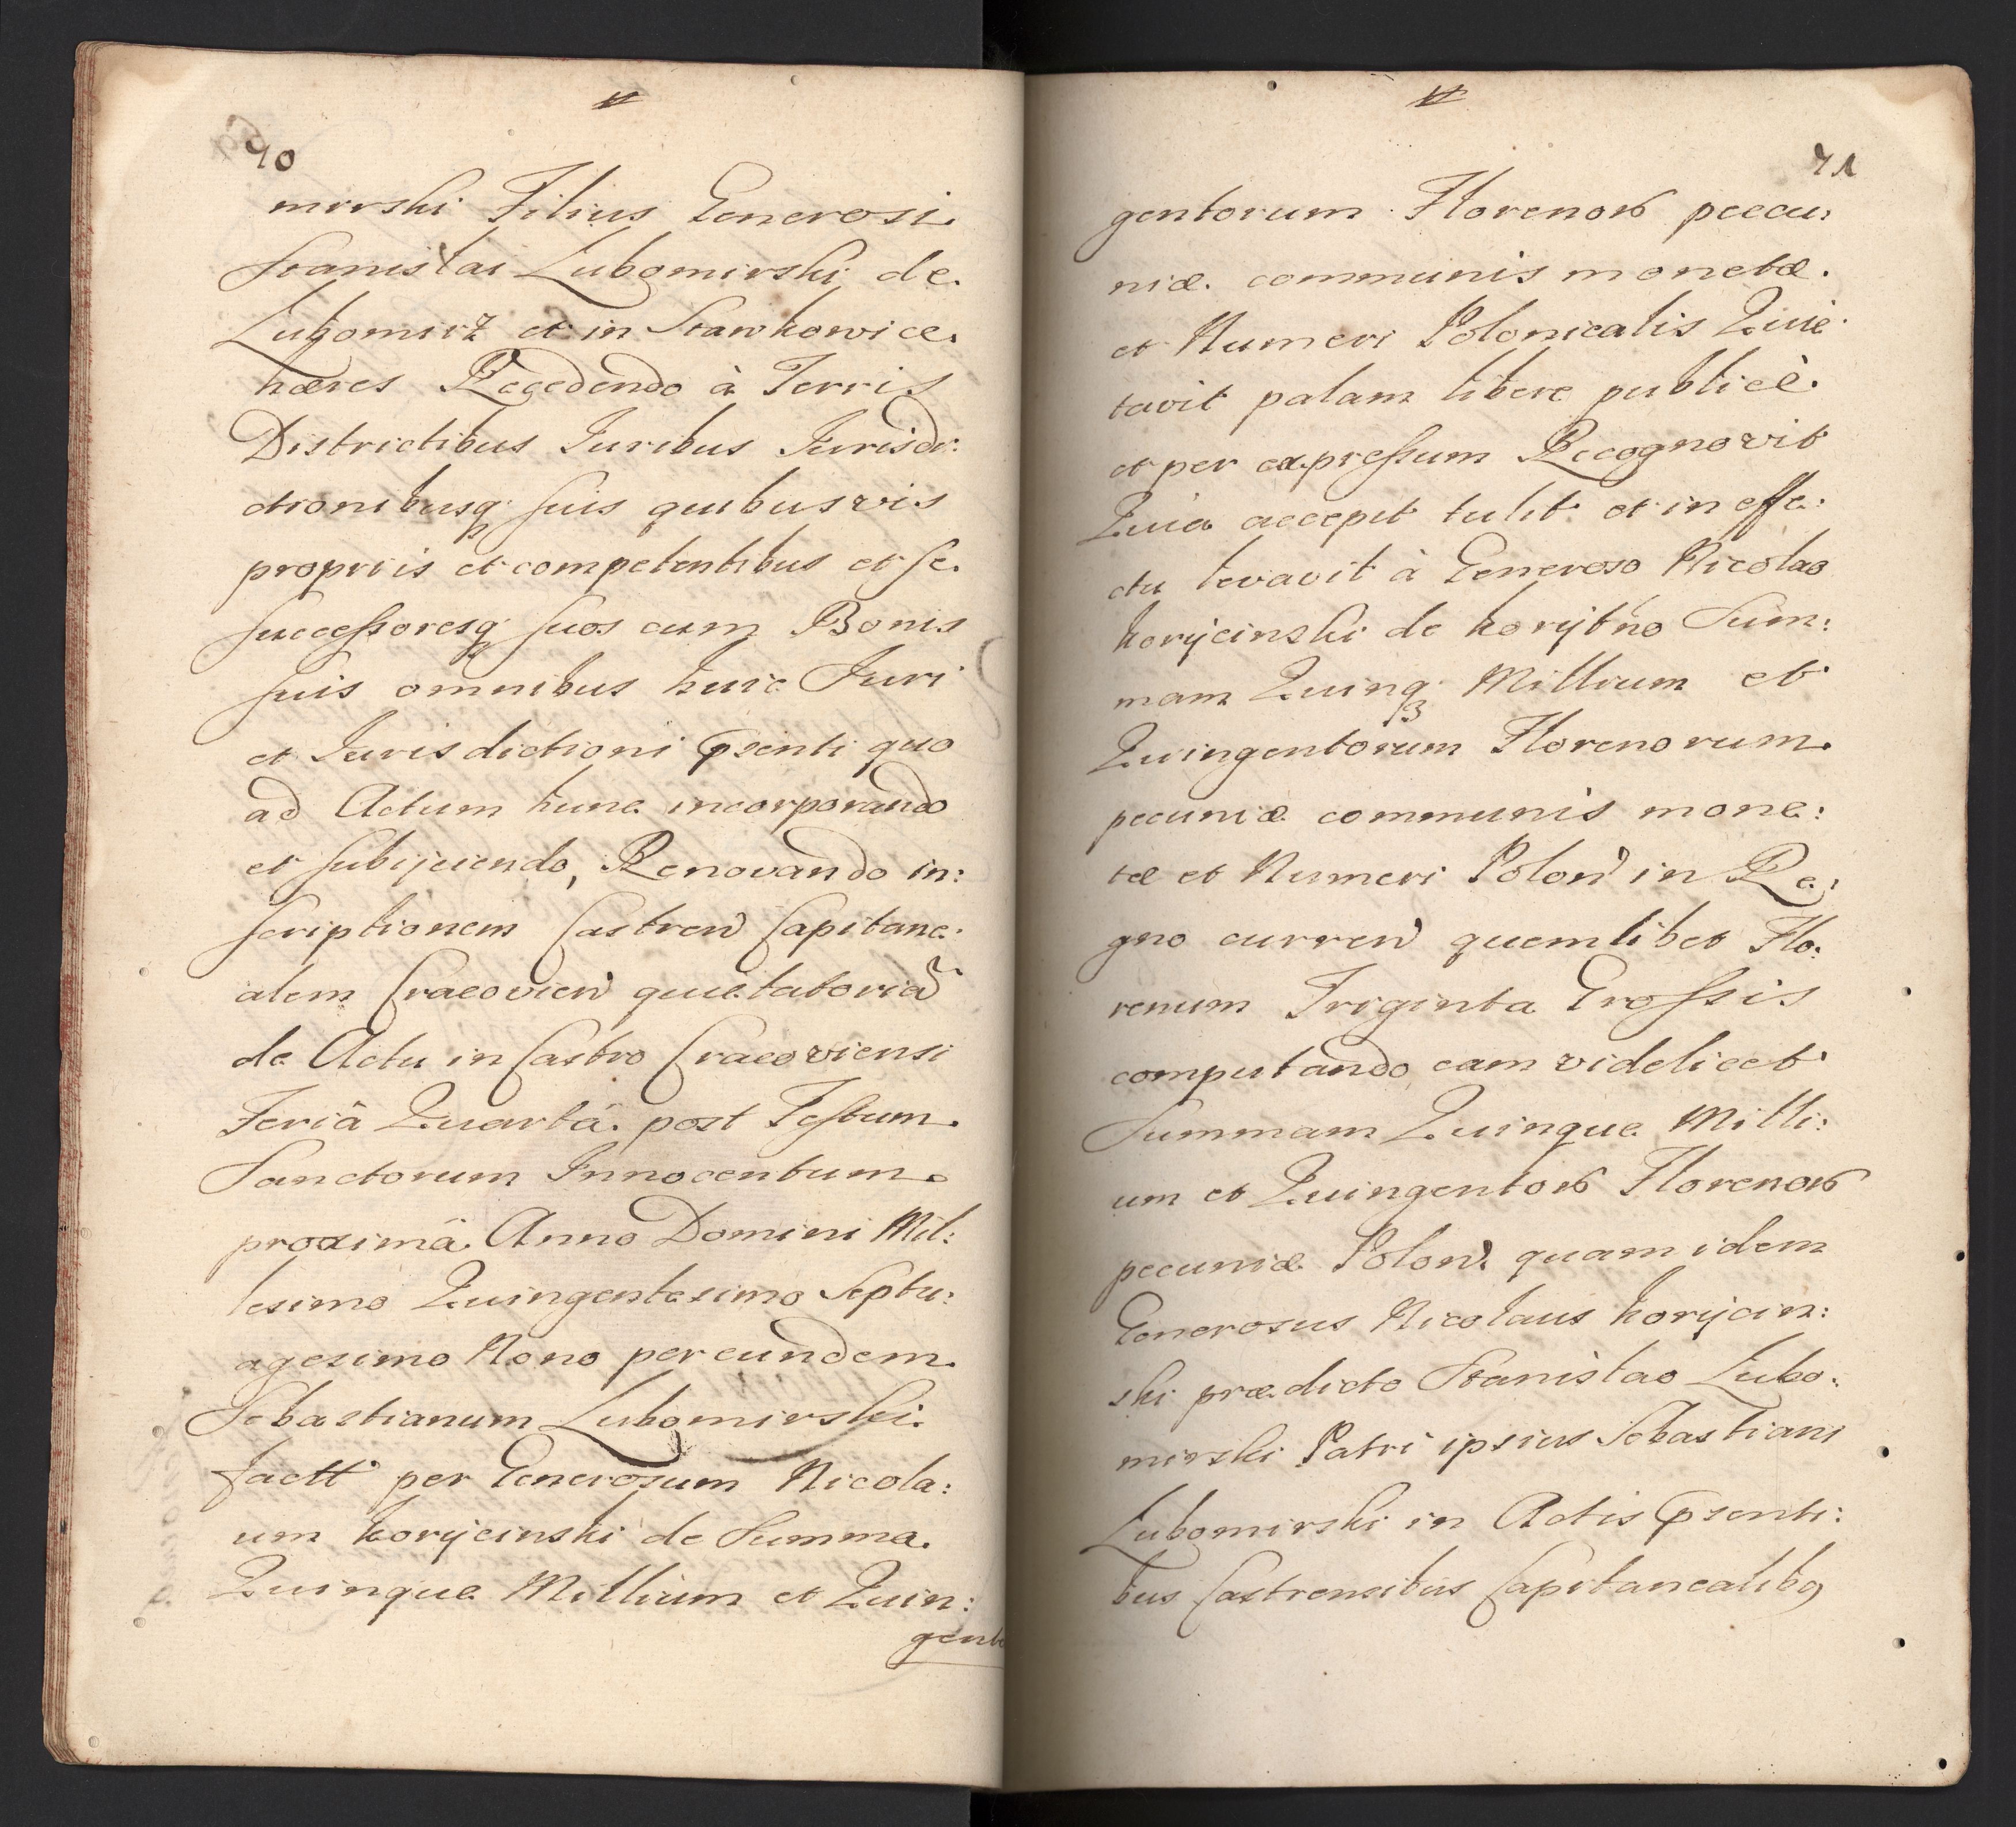 70
mirski Filius Generosi
Stanislai Lubomirski de
Lubomirz et in Stawkowice
hæres Recedendo à Terris
Districtibus Iuribus Iurisdi:
ctionibusq suis quibusvis
propriis et competentibus et se
Successoresq suos cum Bonis
suis omnibus huic Iuri
et Iurisdictioni pśenti quo
ad Actum hunc incorporando
et subijciendo, Renovando in:
scriptionem Castren Capitane:
alem Cracovien quietatoriã
de Actu in Castro Cracoviensi
Feriâ Quartâ post Festum
Sanctorum Innocentum
proximâ Anno Domini Mil:
lesimo Quingentesimo Septu:
agesimo Nono per eundem
Sebastianum Lubomirski
factt per Generosum Nicola:
um Korijcinski de Summa
Quinque Millium et Quin:
gento
71
gentorum Florenor pecu:
niæ communis monetæ
et Numeri Polonicalis Quie
tavit palam libere publicè
et per expressum Recognovit
Quia accepit tulit et in effe:
ctu levavit à Generoso Nicolao
Korijcinski de Korijtno Sum:
mam Quinq Millium et
Quingentorum Florenorum
pecuniæ communis mone:
tæ et Numeri Polon in Re:
gno curren quemlibet Flo:
renum Triginta Grossis
computando eam videlicet
Summam Quinque Milli:
um et Quingentor Florenor
pecuniæ Polon quam idem
Generosus Nicolaus Korijcin:
ski prædicto Stanislao Lubo:
mirski Patri ipsius Sebastiani
Lubomirski in Actis pśenti:
bus Castrensibus Capitanealibq